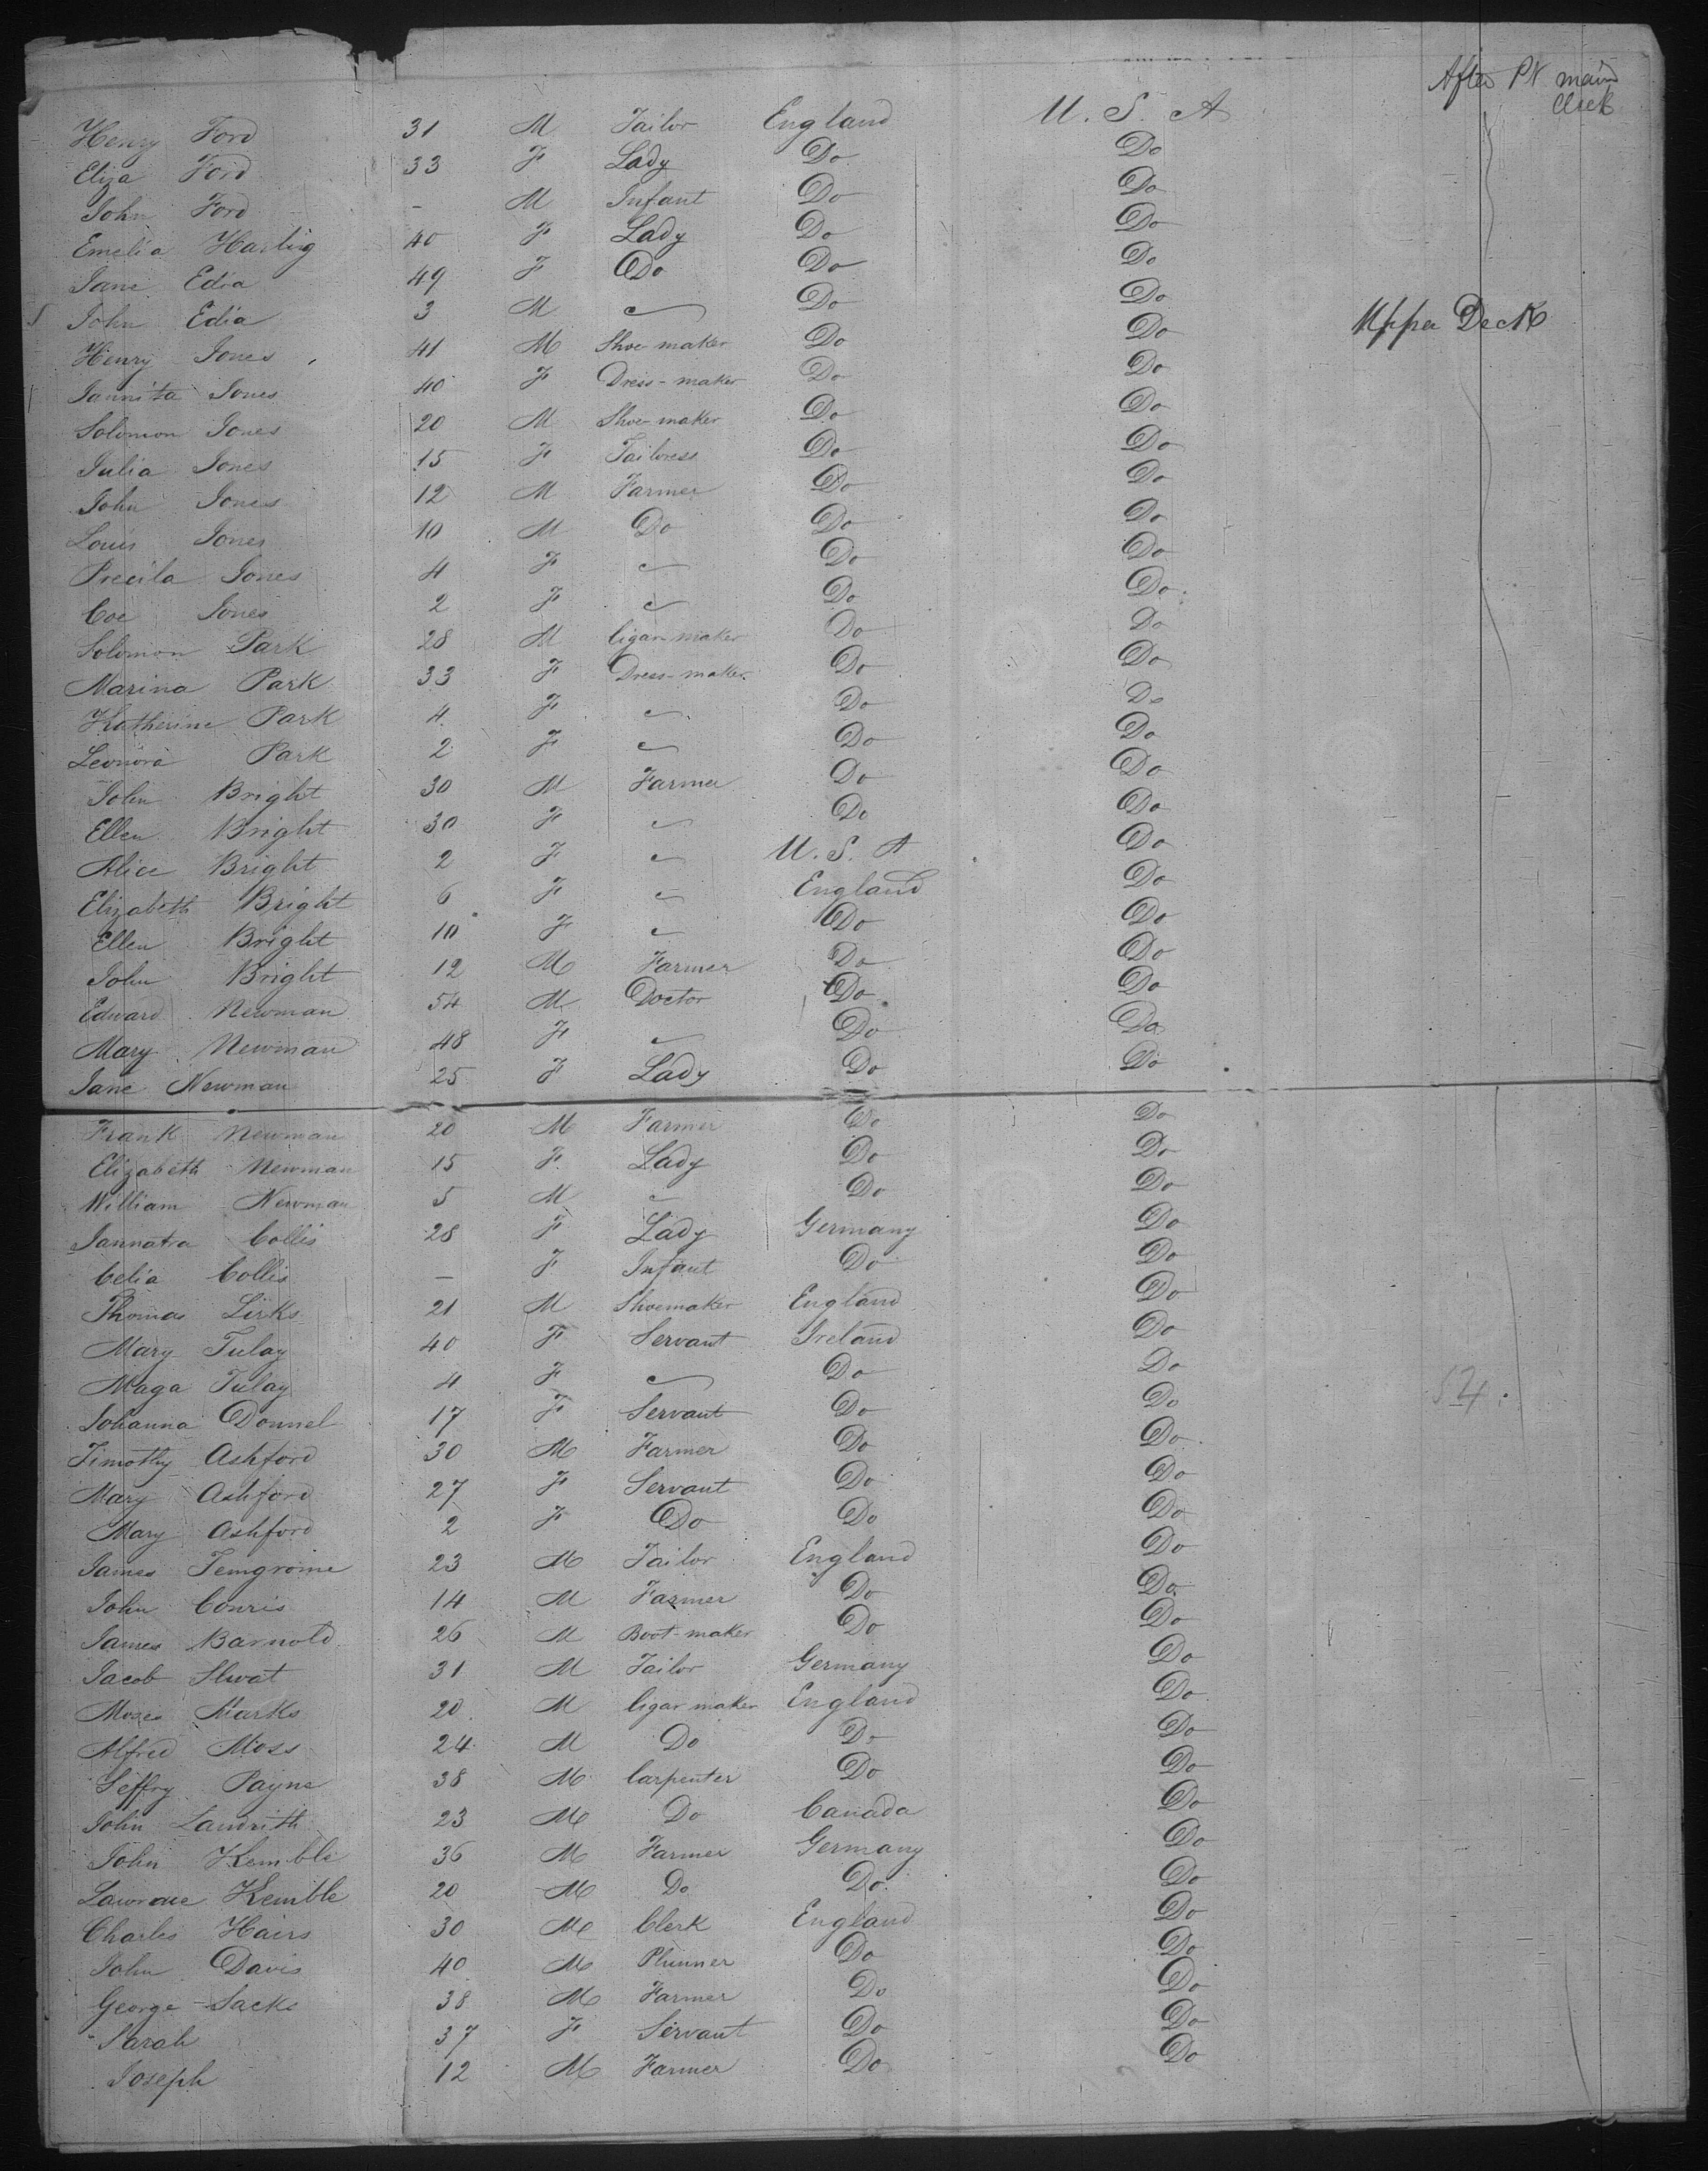 After Pt main
deck
Henry Ford 31 M Tailor England U. S. A
Eliza Ford 33 F Lady Do Do
John Ford - M Infant Do Do
Emelia Harting 40 F Lady Do Do
Jane Edia 49 F Do Do Do
John Edia 3 M Do Do
Upper Deck
Henry Jones 41 M Shoe maker Do Do
Jannita Jones 40 F Dress-maker Do Do
Solomon Jones 20 M Shoe maker Do Do
Julia Jones 15 F Tailoress Do Do
John Jones 12 M Farmer Do Do
Louis Jones 10 M Do Do Do
Precila Jones 4 F Do Do
Coe Jones 2 F Do Do
Solomon Park 28 M Cigar maker Do Do
Marina Park 33 F Dress-maker Do Do
Katherine Park 4 F Do Do
Leonora Park 2 F Do Do
John Bright 30 M Farmer Do Do
Ellen Bright 30 F Do Do
Alice Bright 2 F U. S. A Do
Elizabeth Bright 6 F England Do
Ellen Bright 10 F Do Do
John Bright 12 M Farmer Do Do
Edward Newman 54 M Doctor Do Do
Mary Newman 48 F Do Do
Jane Newman 25 F Lady Do Do
Frank Newman 20 M Farmer Do Do
Elizabeth Newman 15 F Lady Do Do
William Newman 5 M Do Do
Jannatra Collis 28 F Lady Germany Do
Celia Collis - F Infant Do Do
Thomas Lirks 21 M Shoemaker England Do
Mary Tulay 40 F Servant Ireland Do
Maga Tulay 4 F Do Do
54
Johanna Donnel 17 F Servant Do Do
Timothy Ashford 30 M Farmer Do Do
Mary Ashford 27 F Servant Do Do
Mary Ashford 2 F Do Do Do
James 23 M Tailor England Do
John Conris 14 M Farmer Do Do
James Barnold 26 M Boot-maker Do Do
Jacob Slwat 31 M Tailor Germany Do
Moses Marks 20 M Cigar maker England Do
Alfred Moss 24 M Do Do Do
Jeffry Payne 38 M Carpenter Do Do
John Landrith 23 M Do Canada Do
John Kemble 36 M Farmer Germany Do
Lawrance Kemble 20 M Do Do Do
Charles Hairs 30 M Clerk England Do
John Davis 40 M Plummer Do Do
George Sacks 38 M Farmer Do Do
Sarah 37 F Servant Do Do
Joseph 12 M Farmer Do Do